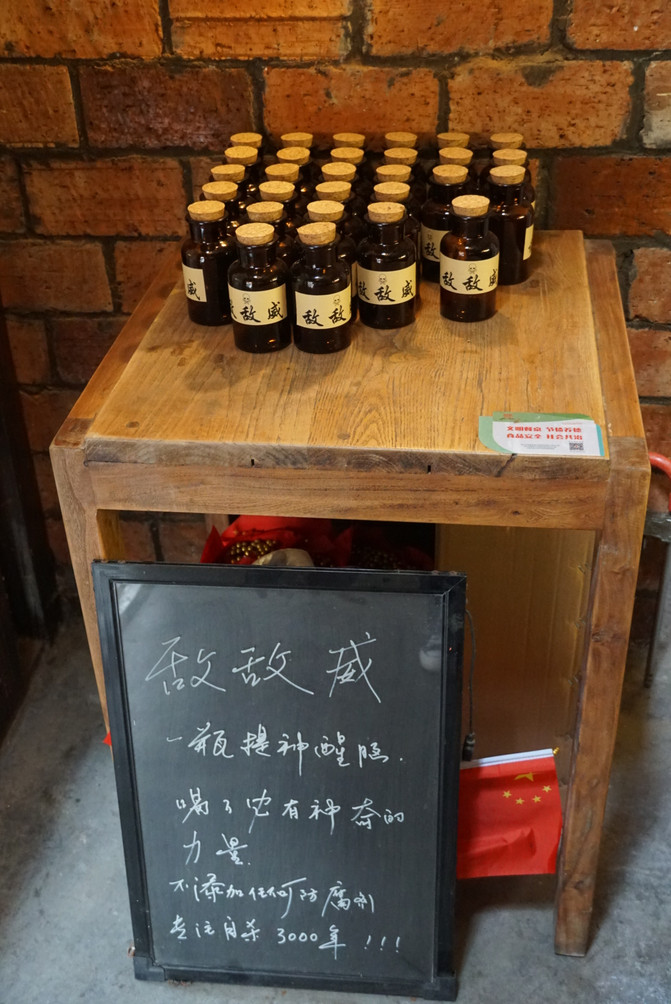 威
敌敌威
敌敌
敌敌威
敌敌威
文明餐桌 节俭养德
食品安全 社会共治
敌敌威
一瓶提神醒脑.
喝了它有神奇的
力量.
不添加任何防腐剂
专注自杀3000年!!!